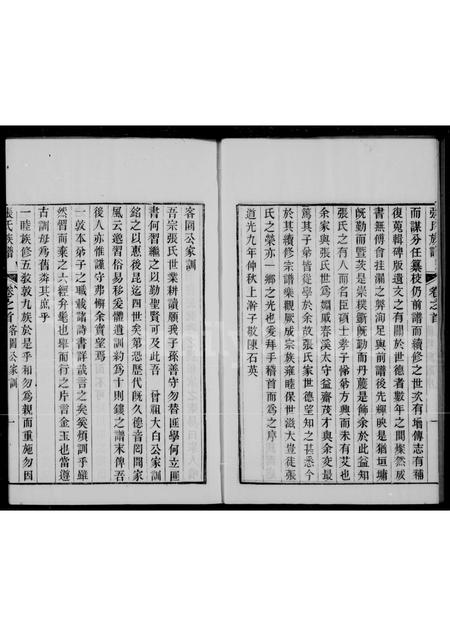 張氏族譜 卷之首
而謀分任纂校仍前譜而續修之世次有增傳志有補
復蒐輯碑版遺文之有關於世德者數年之間燦然成
書無傅會挂漏之弊洵足與前譜後先輝映是猶垣墉
旣勤而曁茨是崇樸斵旣勤而丹雘是飾余於此益知
張氏之有人而名臣碩士孝子悌弟方興而未有艾也
余家與張氏世爲婣戚春溪太守益齋茂才與余交最
篤其子弟皆從學於余故張氏家世德望知之甚悉今
於其續修宗譜樂觀厥成宗族雍睦保世滋大豈徒張
氏之榮亦一鄉之光也爰拜手稽首而爲之序
道光九年仲秋上澣子敬陳石英
客園公家訓
吾宗張氏世業耕讀願我子孫善守勿替匪學何立匪
書何習繼之以勤聖賢可及此吾 曾祖大白公家訓
銘之以惠後昆迄四世矣第恐歷代旣久德音罔聞家
風云邈習俗易移爰體遺訓約爲十則鋟之譜末俾吾
後人亦惟謹守弗懈余實望焉
一敦本弟子之職載諸詩書詳哉言之矣奚煩訓乎雖
然習而棄之六經弁髦也擧而行之片言金玉也當遵
古訓毋爲舊粦其庶乎
一睦族修五敎敦九族於是乎相勿爲親而重施勿因
張氏族譜 卷之首 客園公家訓 一